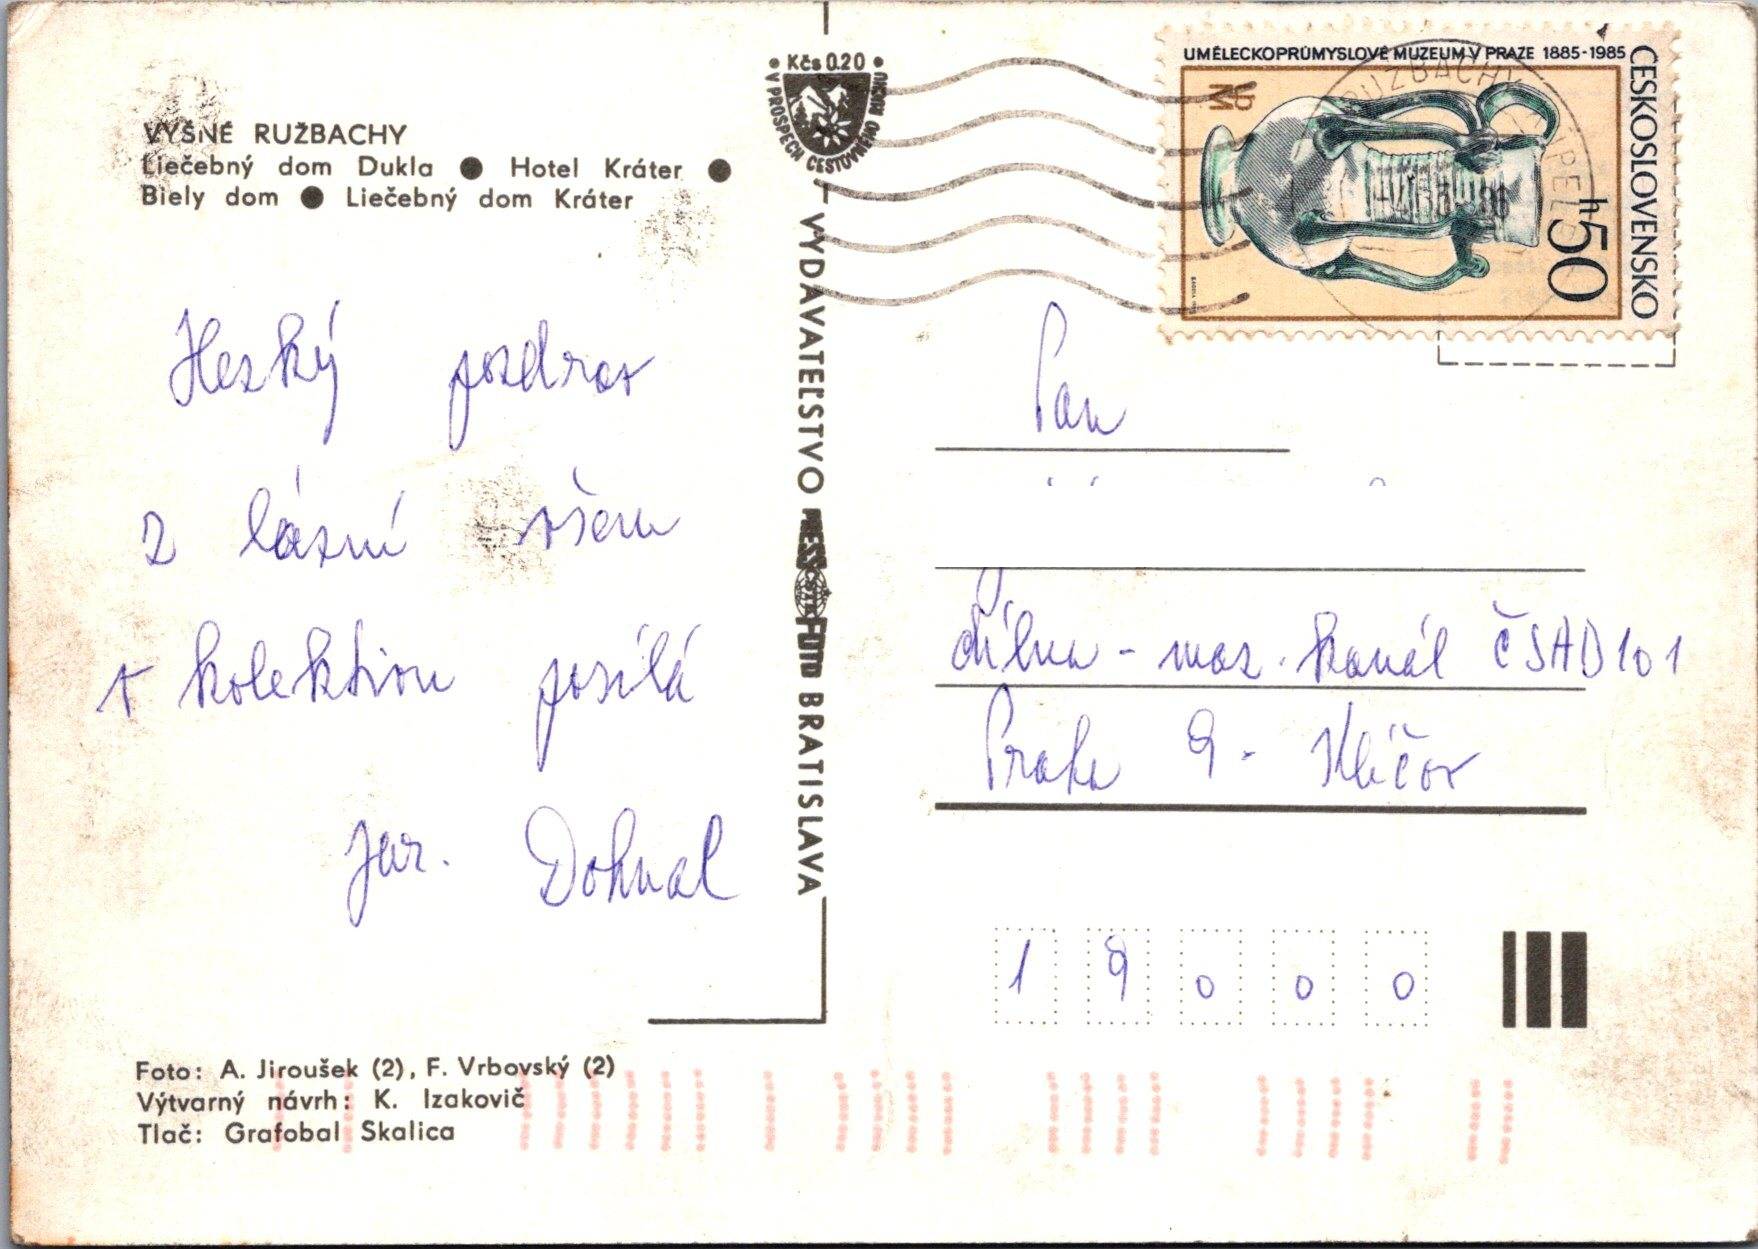 VYŠNÉ RUŽBACHY
Liečebný dom Dukla ● Hotel Kráter ●
Biely dom ● Liečebný dom Kráter
Hezký pozdrav
z lázní všem
v kolektivu posílá
Jar. Dohnal
Foto: A. Jiroušek (2), F. Vrbovský (2)
Výtvarný návrh: K. Izakovič
Tlač: Grafobal Skalica
• Kčs 0.20 •
V PROSPECH CESTOVNÉHO RUCHU
VYDAVATEĽSTVO PRESSFOTO BRATISLAVA
ČSTK
UMĚLECKOPRŮMYSLOVÉ MUZEUM V PRAZE 1885-1985
ČESKOSLOVENSKO
50h
RUŽBACHY
Pan
Dílna - maz. kanál ČSAD 101
Praha 9 - Klíčov
19000